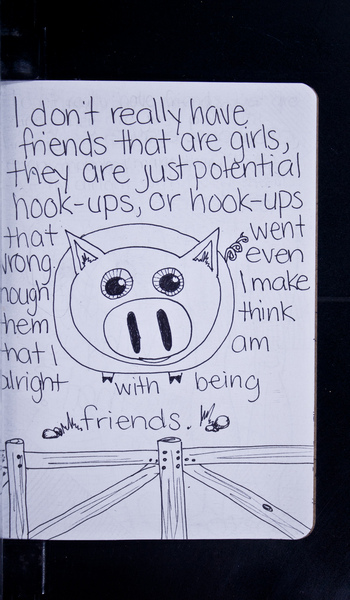 I don't really have
friends that are girls,
they are just potential
hook-ups, or hook-ups
that went
wrong. even
hough I make
them think
that I am
alright with being
friends.